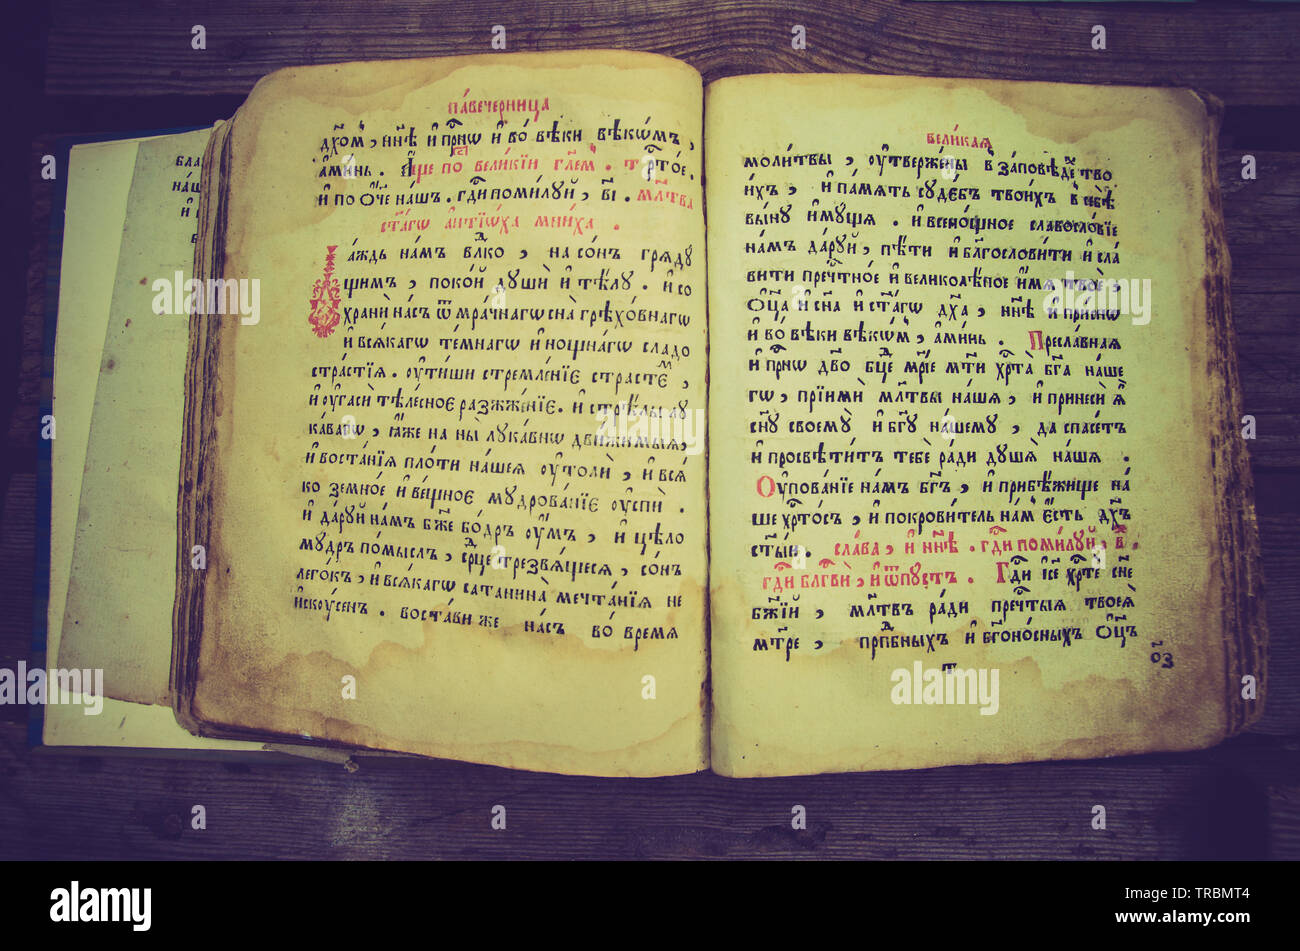 па́вечерница
дх҃ом, ны́нѣ и҆ при́сно и҆ во́ вѣки вѣкѡ́мъ,
а҆ми́нь. А҆́ще по вели́кїи гла҃сѣм. трт҃ое.
и҆ по Ѻ҆́ч҃е на́шъ. гд҃и поми́луй, в҃і. мл҃тва
ст҃а́гѡ а҆нтїѡ́ха мни́ха.
а́ждь на́мъ влⷣко, на со́нъ гряду
щимъ, поко́й души̂ и҆ тѣ́лу. и҆ со
храни̂ на́съ ѿ мра́чнагѡ сна̀ грѣхо́внагѡ
и҆ вся́кагѡ те́мнагѡ и҆ нощна́гѡ сладо
стра́стїя. оу҆тиши̂ стремле́нїє страсте́ⷨ,
и҆ оу҆гаси̂ тѣле́сноє разжже́нїє. и҆ стрѣ́лы лу
ка́вагѡ, ꙗ҆́же на ны̀ лука́внѡ дви́жимыя,
и҆ воста́нїя пло́ти на́шея оу҆толи̂, и҆ вся́
ко земно́е и҆ ве́щноє мудрова́нїє оу҆спи̂.
и҆ да́руй на́мъ бж҃е бо́дръ оу҆́мъ, и҆ цѣ́ло
му́дръ по́мыслъ, срⷣце трезвя́щееся, со́нъ
лего́къ, и҆ вся́кагѡ сатанина̀ мечта́нїя не
и҆скоу́сенъ. воста́ви же на́съ во́ время
вели́кая
моли́твы, оу҆твержены̀ в за́повѣдеⷯ тво
и́хъ, и҆ па́мять суде́бъ твои́хъ в себѣ̀
вы́ну и҆му́щя. и҆ всено́щное славосло́вїє
на́мъ да́руй, пѣ́ти и҆ бл҃гослови́ти и҆ сла́
вити преч҃тно́е и҆ великолѣ́пное и҆́мя твоѐ,
Ѻ҆ц҃а и҆ сн҃а и҆ ст҃а́гѡ дх҃а, ны́нѣ и҆ при́снѡ
и҆ во́ вѣки вѣкѡ́мъ, а҆ми́нь. Пресла́вная
и҆ при́снѡ дв҃о бц҃е мр҃іе мт҃и хр҃та̀ бг҃а на́ше
гѡ, прїими̂ мл҃твы на́шя, и҆ принеси̂ ꙗ҆̀
сн҃у своему̀ и҆ бг҃у на́шему, да спасе́тъ
и҆ просвѣти́тъ тебѐ ра́ди ду́шя на́шя.
Оупова́нїе на́мъ бг҃ъ, и҆ прибѣ́жище на́
ше хр҃то́съ, и҆ покрови́тель на́м є҆́сть дх҃ъ
ст҃ы́и. сла́ва, и҆ ны́нѣ. гд҃и поми́луй, в҃.
гд҃и бл҃гви̂, и҆ ѿпу́стъ. Гд҃и і҆се хр҃тѐ сн҃е
бж҃їй, мл҃твъ ра́ди преч҃тыя твоея̀
мт҃ре, прпⷣбныхъ и҆ бг҃оно́сныхъ Ѻ҆ц҃ъ
т
203
alamy
Image ID: TRBMT4
www.alamy.com